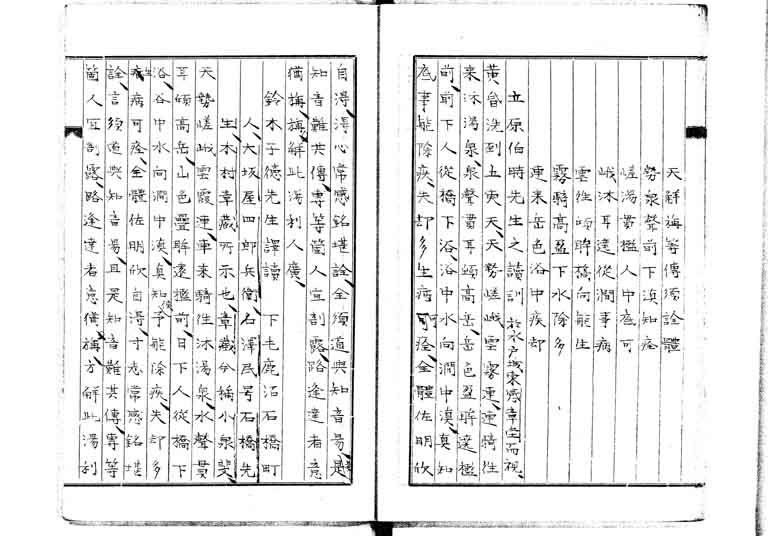 天解梅等傳須詮體
勢泉聲前下湞知痊
嵯湯貫檻人中底可
峨沐耳達從澗事病
雲徃頌眸橋向能生
霧騎高盈下水除多
連来岳色浴中疾却
立原伯時先生之讀訓 於水戸城東感章堂而視
黄曾洗到五更天天勢嵯峨雲霧連連騎徃
来沐湯泉泉聲貫耳頌高岳岳色盈眸達檻
前前下人從橋下浴浴中水向澗中湞真知
底事能除疾失却多生病可痊全體佐明欣
自得得心常感銘堪詮全須道與知音易是
知音難共傳專等箇人宜剖露路逢達者意
猶梅梅解此湯利人廣
鈴木子德先生譯讀 下毛鹿沼石橋町
人大坂屋四郎兵衛名澤民号石橋先
生木村章藏所示也章藏分稱小泉斐
天勢嵯峨雲霞連車来騎徃沐湯泉水聲貫
耳頌高岳山色疊眸遠檻前日下人從橋下
浴谷中水向澗中湞知予能除疾失却多
生病可痊全體佐明欣自得寸志常感銘堪
詮言須道與知音易且是知音難共傳專等
箇人宜剖露路逢達者意猶梅方解此湯利